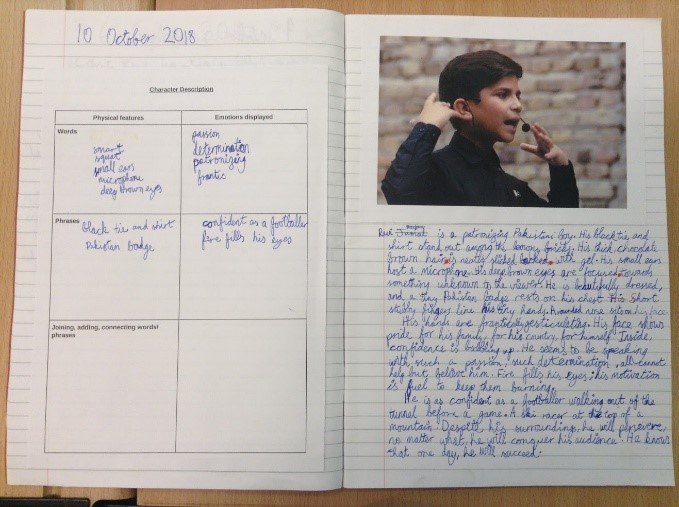 10 October 2018
Character Description
Physical features
Emotions displayed
Words
smart
squat
small ears
microphone
deep brown eyes
passion
determination
patronizing
frantic
Phrases
black tie and shirt
Pakistan badge
confident as a footballer
fire fills his eyes
Joining, adding, connecting words/
phrases
is a patronizing Pakistani boy. His black tie and
shirt stand out among the bricks. His thick chocolate
brown hair is neatly slided with gel. His small ears
host a microphone. His deep brown eyes are focused towards
something unknown to the viewer. He is beautifully dressed,
and a tiny Pakistan badge rests on his chest. His short
stubby fingers line his tiny hands. A rounded nose sits on his face.
His hands are frantically gesticulating. His face shows
pride for his family, for his country, for himself. Inside,
confidence is bubbling up. He seems to be speaking
with such a passion, such determination, all cannot
help but believe him. Fire fills his eyes; his motivation
is fuel to keep them burning.
He is as confident as a footballer walking out of the
tunnel before a game. A ski racer at the top of a
mountain. Despite his surroundings, he will persevere,
no matter what, he will conquer his audience. He knows
that one day, he will succeed.